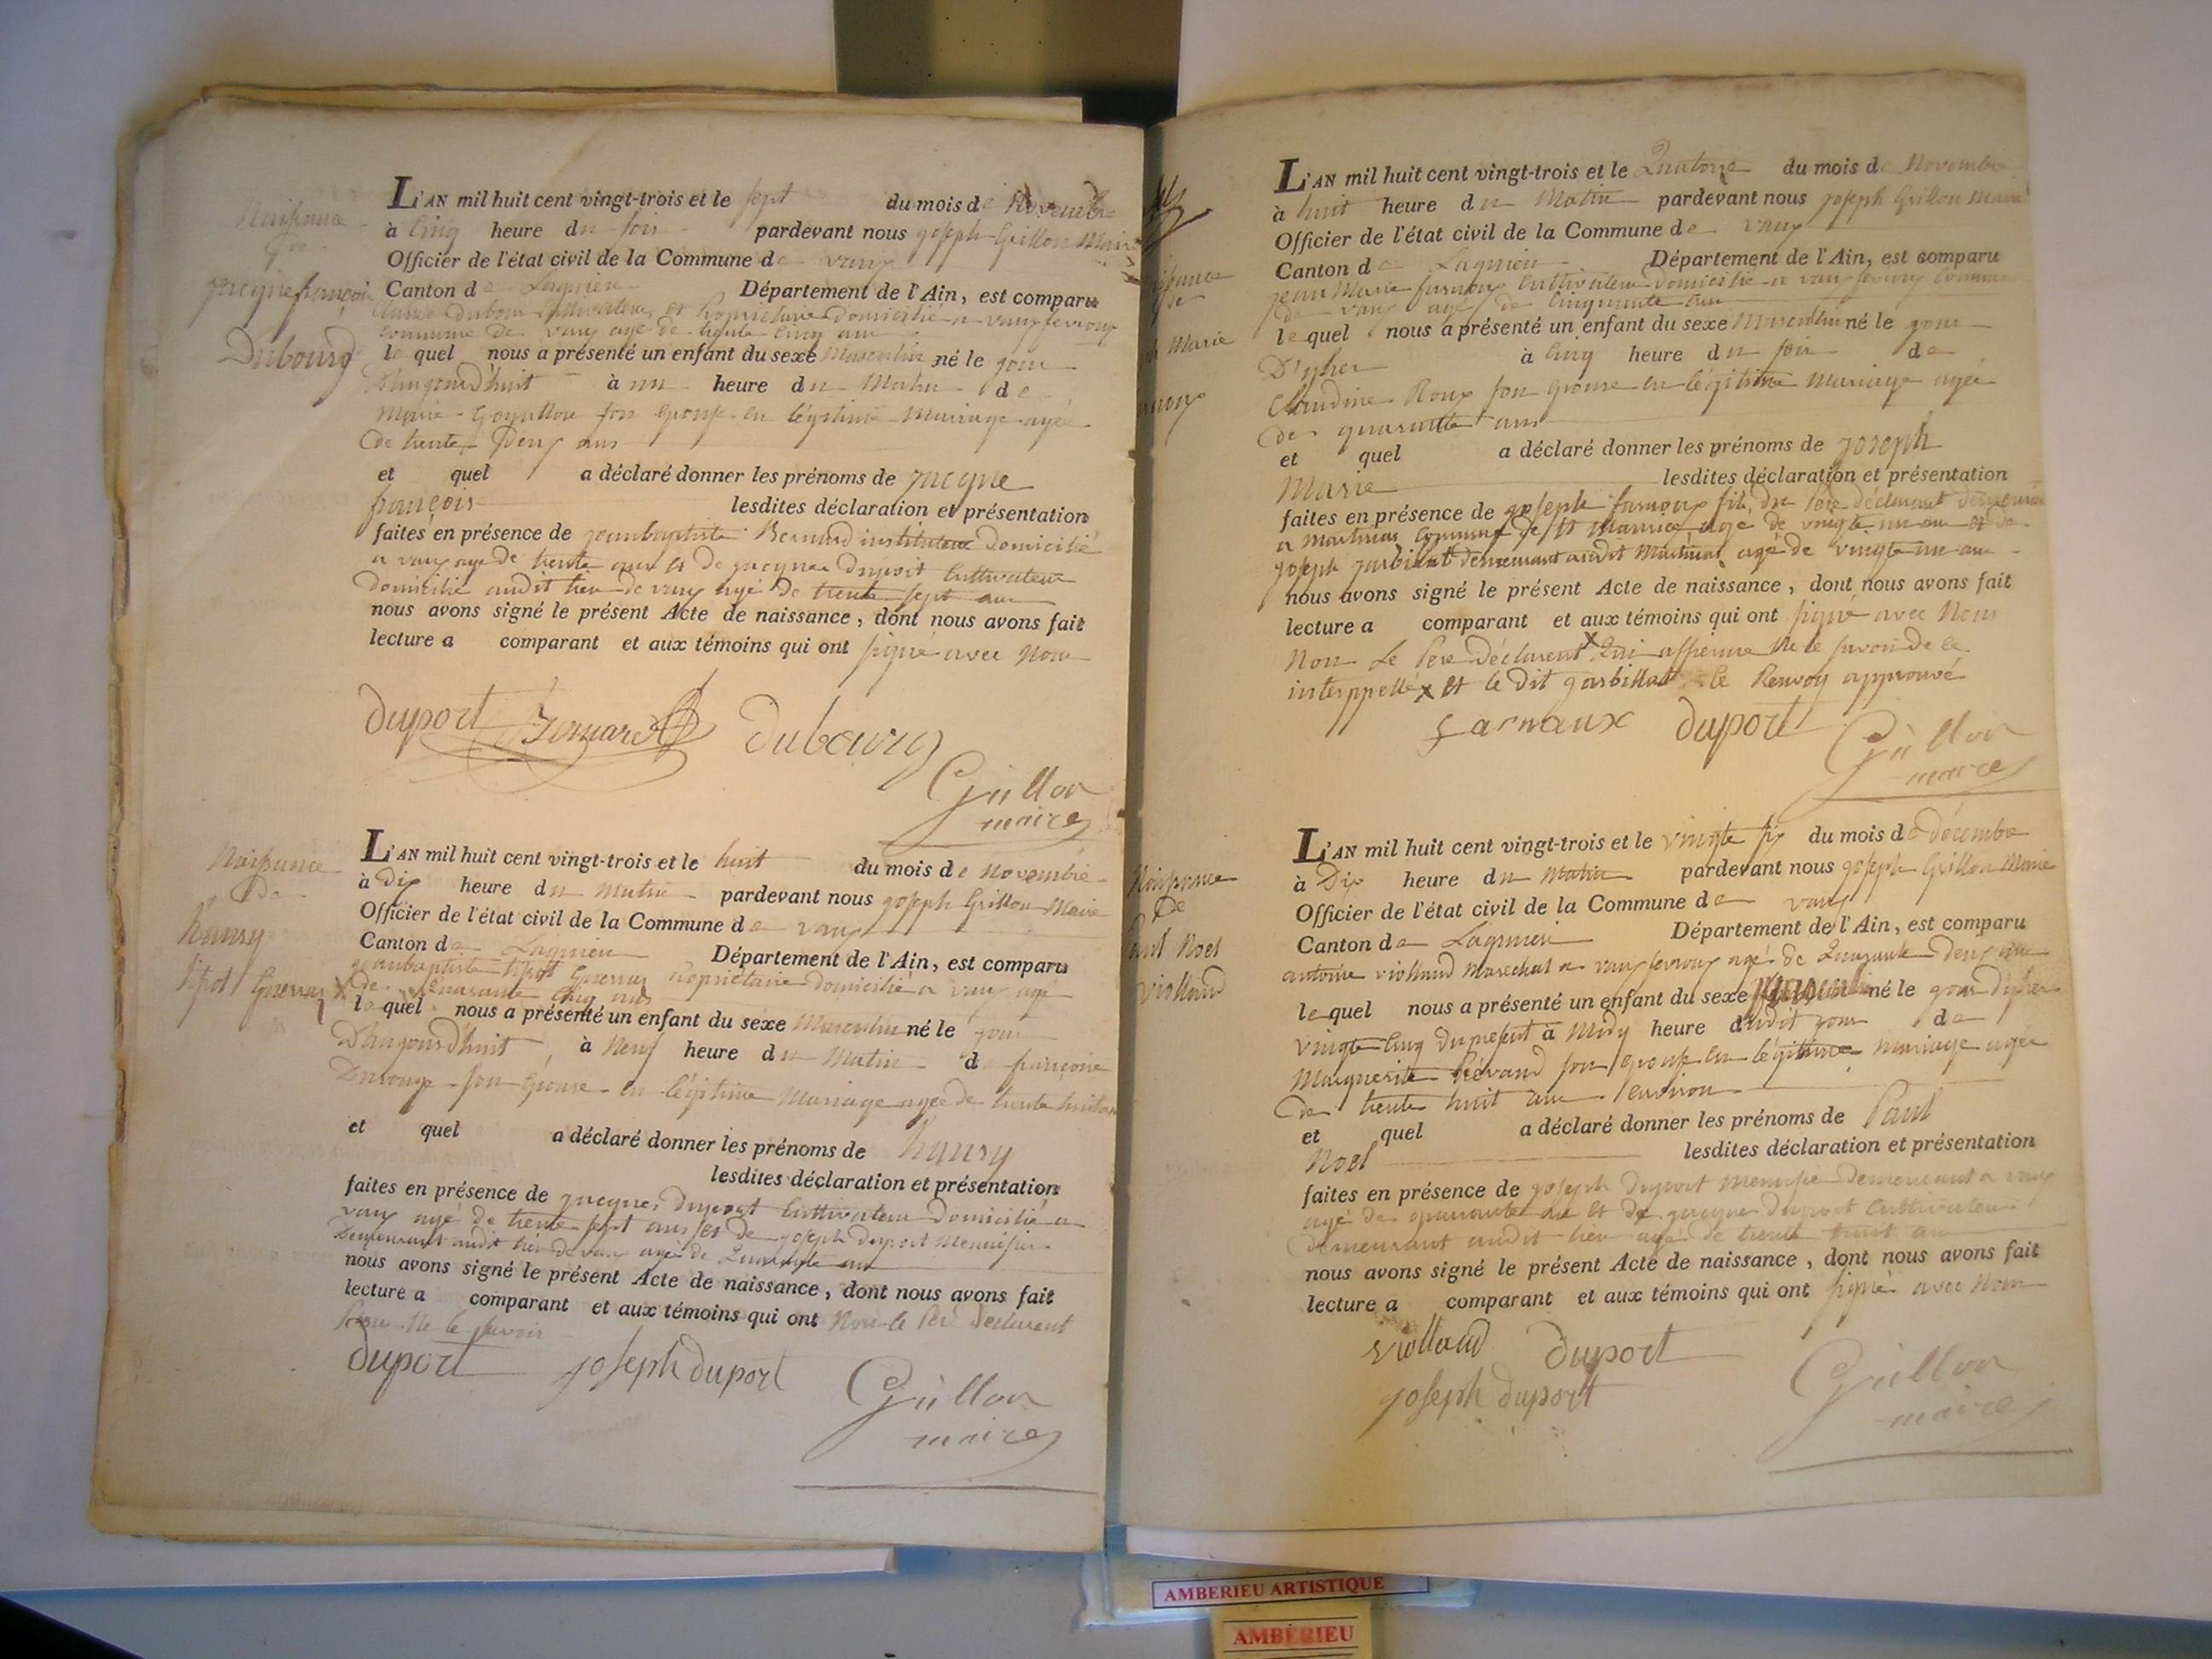 Naissance
de
jacque françois
Dubourg
L'AN mil huit cent vingt-trois et le sept du mois de Novembre
à Cinq heure du soir pardevant nous joseph Grillon Maire
Officier de l'état civil de la Commune de vaux
Canton de Lagnieu Département de l'Ain, est comparu
Dubourg Cultivateur et Propriétaire domicilié a vaux fevroux
commune De vaux agé de trente Cinq ans
le quel nous a présenté un enfant du sexe Masculin né le jour
D'aujourd'huit à un heure du Matin de
Marie son Epouse en légitime Mariage agée
de trente Deux ans
et quel a déclaré donner les prénoms de jacque
françois lesdites déclaration et présentation
faites en présence de jeanbaptiste Bernard instituteur Domicilié
a vaux age De trente ans et De jacques Duport Cultivateur
domicilié audit lieu de vaux agé De trente sept ans
nous avons signé le présent Acte de naissance, dont nous avons fait
lecture a comparant et aux témoins qui ont signé avec Nous
duport Bernard Dubourg
Grillon
maire
Naissance
de
hanry
tipot Guerras
L'AN mil huit cent vingt-trois et le huit du mois de Novembre
à Dix heure du Matin pardevant nous joseph Grillon Maire
Officier de l'état civil de la Commune de vaux
Canton de Lagnieu Département de l'Ain, est comparu
jeanbaptiste tipot Guerras Propriétaire domicilié a vaux agé
de Quarante Cinq ans
le quel nous a présenté un enfant du sexe Masculin né le jour
D'aujourd'huit, à Neuf heure du Matin de françoise
son Epouse en légitime Mariage agée de trente huit ans
et quel a déclaré donner les prénoms de hanry
lesdites déclaration et présentation
faites en présence de jacques Duport Cultivateur Domicilié a
vaux agé de trente sept ans et De joseph Duport Menuisier
Demeurant audit lieu de vaux agé de Quarante ans
nous avons signé le présent Acte de naissance, dont nous avons fait
lecture a comparant et aux témoins qui ont Non le Père Déclarent
Pour Ne le savoir
duport joseph duport
Grillon
maire
Marie
L'AN mil huit cent vingt-trois et le Quatorze du mois de Novembre
à huit heure du Matin pardevant nous joseph Grillon Maire
Officier de l'état civil de la Commune de vaux
Canton de Lagnieu Département de l'Ain, est comparu
jean Marie farnoux Cultivateur domicilié a vaux fevroux Commune
de vaux agé de Cinquante ans
le quel nous a présenté un enfant du sexe Masculin né le jour
D'yher à Cinq heure du soir de
Claudine Roux son épouse en légitime Mariage agée
de quarante ans
et quel a déclaré donner les prénoms de joseph
Marie lesdites déclaration et présentation
faites en présence de joseph farnoux fils du Père déclarent demeurant
a Martinas Commune de St Maurice agé de vingte un ans et de
joseph jarbillat demeurant audit Martinas agé de vingte un ans
nous avons signé le présent Acte de naissance, dont nous avons fait
lecture a comparant et aux témoins qui ont signé avec Nous
Non Le Père Déclarent x Qui Ne le savoir De ce
interppellé x et le Dit garbillat le Renvoy approuvé
farnaux duport
Grillon
maire
Naissance
De
Paul Noel
viollaud
L'AN mil huit cent vingt-trois et le vingte six du mois de décembre
à Dix heure du Matin pardevant nous joseph Grillon Maire
Officier de l'état civil de la Commune de vaux
Canton de Lagnieu Département de l'Ain, est comparu
antoine viollaud Marechal a vaux fevroux agé de Quarante Deux ans
le quel nous a présenté un enfant du sexe Masculin né le jour D'yher
vingte Cinq du présent à Midy heure dudit jour de
Marguerite son épouse en légitime mariage agée
de trente huit ans environ
et quel a déclaré donner les prénoms de Paul
Noel lesdites déclaration et présentation
faites en présence de joseph Duport Menuisier Demeurant a vaux
agé de quarante ans et De jacques Duport Cultivateur
demeurant audit lieu agé de trente huit ans
nous avons signé le présent Acte de naissance, dont nous avons fait
lecture a comparant et aux témoins qui ont signé avec Nous
viollaud duport
joseph duport
Grillon
maire
AMBERIEU ARTISTIQUE
AMBÉRIEU